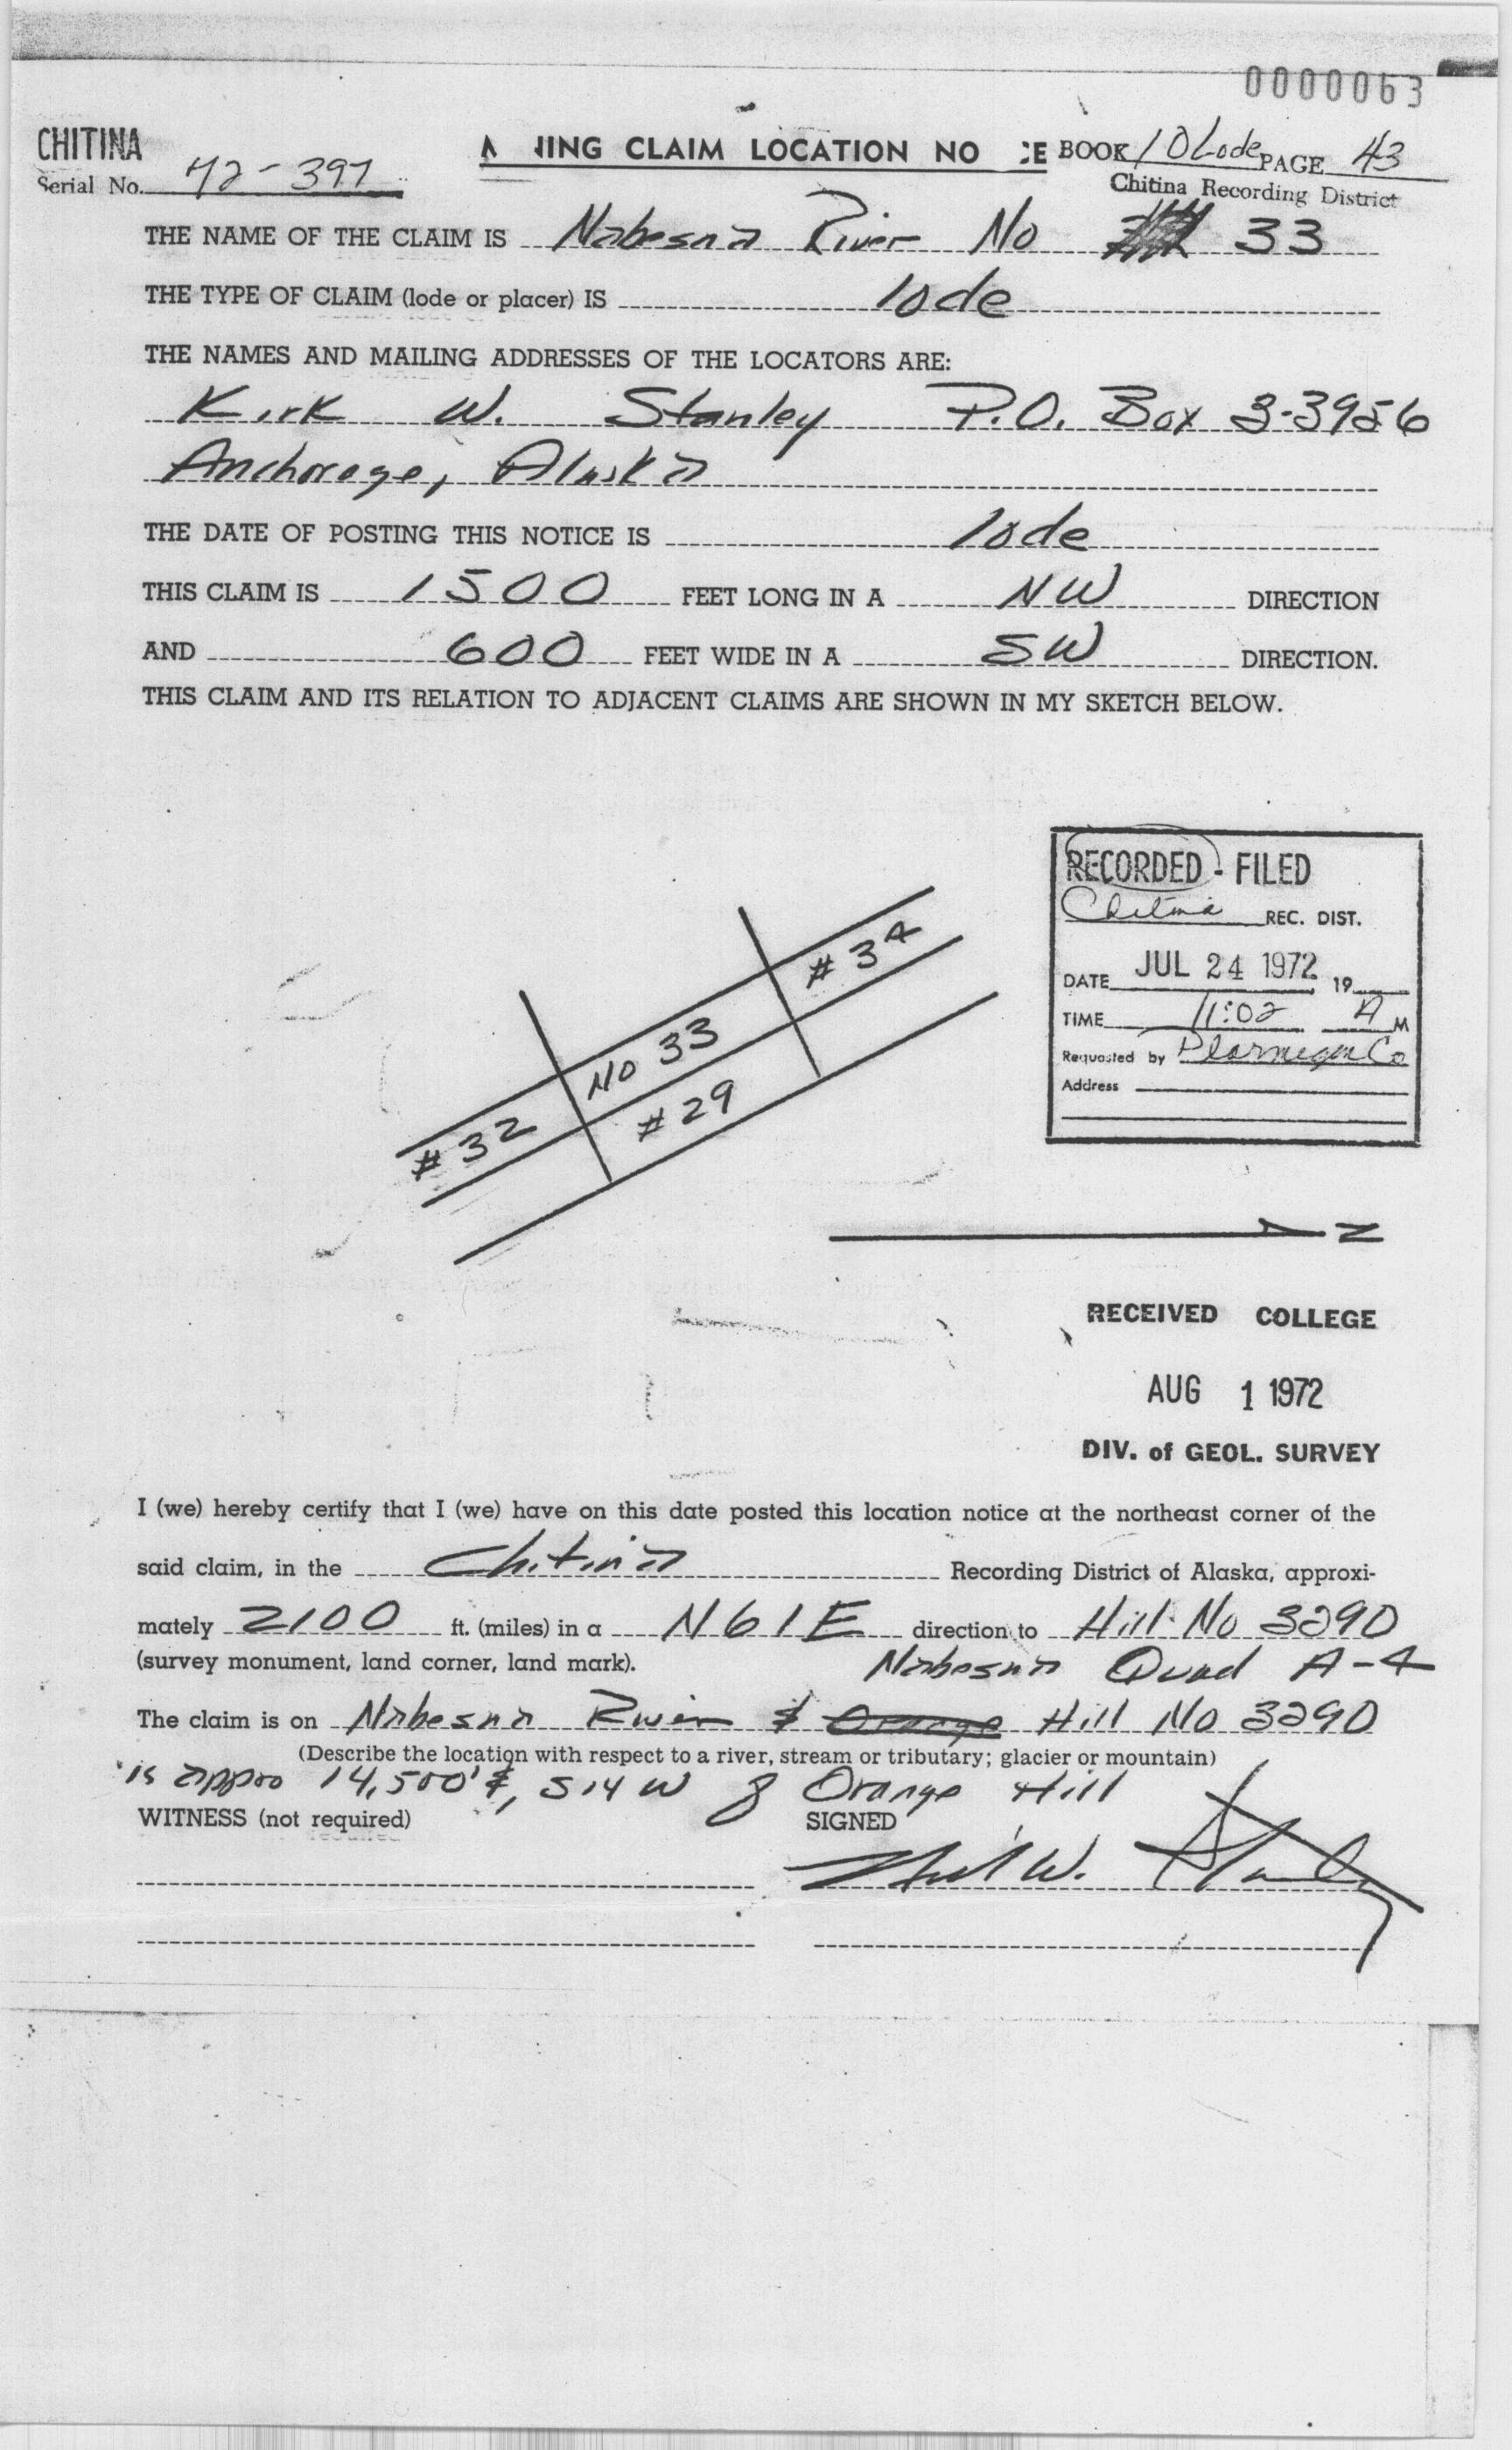 0000063
CHITINA
Serial No. 72-397
NING CLAIM LOCATION NO CE BOOK 10 Lode PAGE 43
Chitina Recording District
THE NAME OF THE CLAIM IS Nabesna River No 33
THE TYPE OF CLAIM (lode or placer) IS lode
THE NAMES AND MAILING ADDRESSES OF THE LOCATORS ARE:
Kirk W. Stanley P.O. Box 3-3956
Anchorage, Alaska
THE DATE OF POSTING THIS NOTICE IS lode
THIS CLAIM IS 1500 FEET LONG IN A NW DIRECTION
AND 600 FEET WIDE IN A SW DIRECTION.
THIS CLAIM AND ITS RELATION TO ADJACENT CLAIMS ARE SHOWN IN MY SKETCH BELOW.
RECORDED - FILED
Chitina REC. DIST.
DATE JUL 24 1972 19
TIME 11:02 A M
Requested by Ptarmigan Co
Address
# 34
No 33
# 32
# 29
N
RECEIVED COLLEGE
AUG 1 1972
DIV. of GEOL. SURVEY
I (we) hereby certify that I (we) have on this date posted this location notice at the northeast corner of the
said claim, in the Chitina Recording District of Alaska, approxi-
mately 2100 ft. (miles) in a N61E direction to Hill No 3290
(survey monument, land corner, land mark). Nabesna Quad A-4
The claim is on Nabesna River & Orange Hill No 3290
(Describe the location with respect to a river, stream or tributary; glacier or mountain)
is appro 14,500'±, S14W of Orange Hill
WITNESS (not required) SIGNED
Kirk W. Stanley